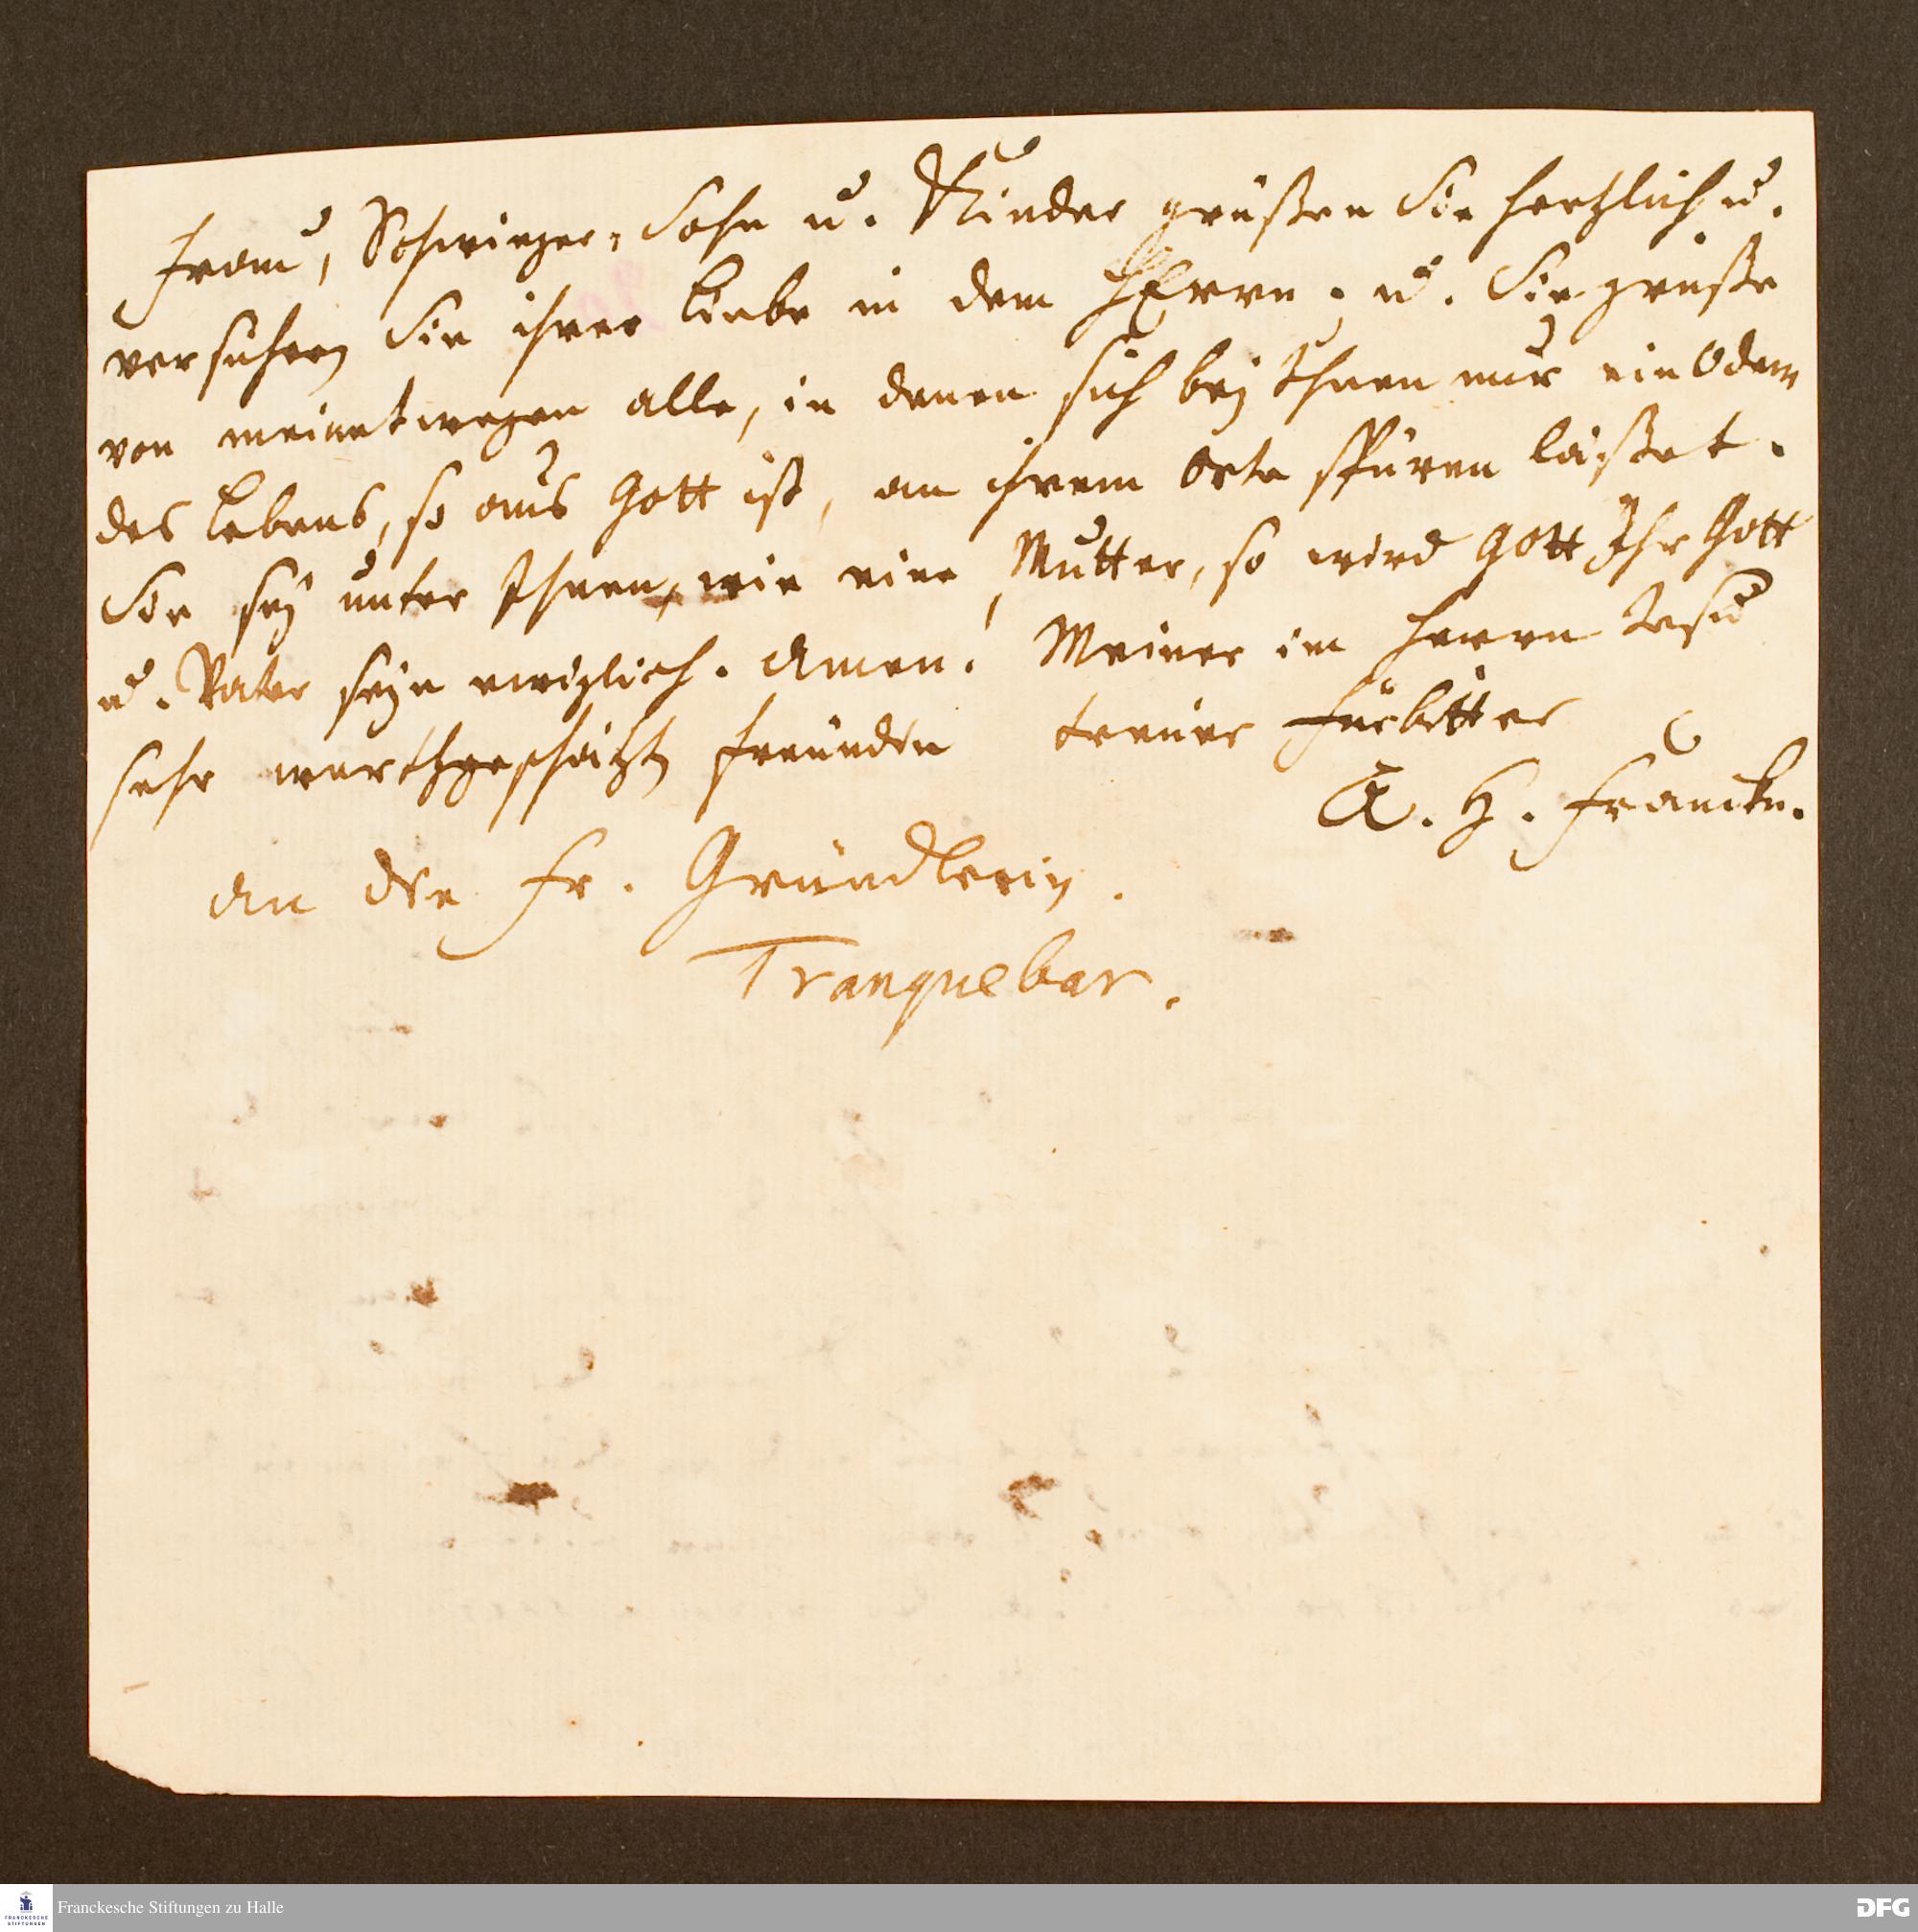 Frau, Schwieger-Sohn u. Kinder grüßen Sie hertzlich u.
versichern Sie ihrer Liebe in dem HErrn. u. Sie grüße
von meinetwegen alle, in denen sich bey Ihnen nur ein Odem
des Lebens, so aus Gott ist, an ihrem Orte spüren läßet.
Sie sey unter Ihnen, wie eine Mutter, so wird Gott Ihr Gott
u. Vater seyn ewiglich. Amen. Meiner im Herrn Jesu
sehr werthgeschätzten Freundin treuer Fürbitter
A. H. Francke.
An die Fr. Gründlerin.
Tranquebar.
Franckesche Stiftungen zu Halle
FRANCKESCHE STIFTUNGEN
DFG